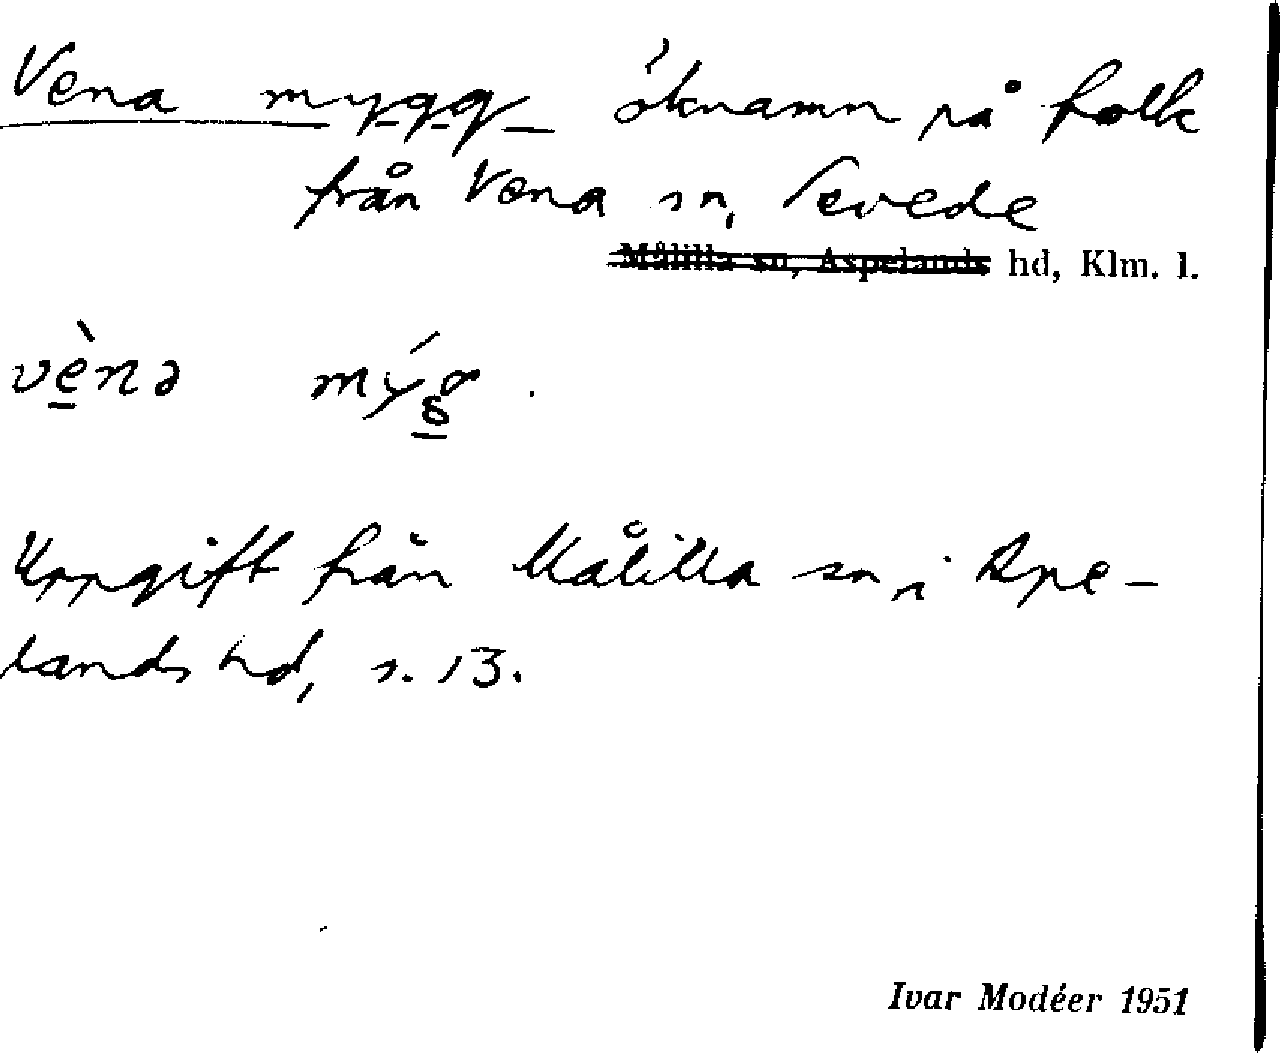 Vena mygg öknamn på folk
från Vena sn, Sevede
Målilla sn, Aspelands hd, Klm. l.
vènə mýg.
Uppgift från Målilla sn i Aspe-
lands hd, s. 13.
Ivar Modéer 1951